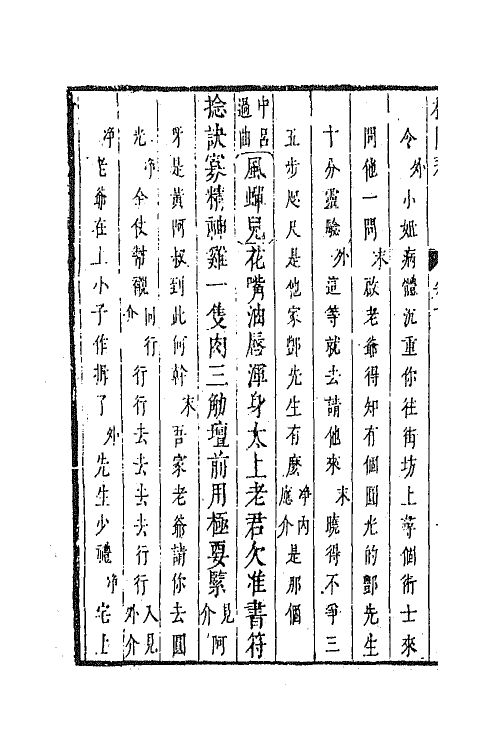 令外小姐病體沉重你往街坊上尋個術士來
問他一問末啟老爺得知有個圓光的鄧先生
十分靈驗外這等就去請他來末曉得不爭三
五步咫尺是他家鄧先生有麽淨內應介是那個
中呂過曲風蟬兒花嘴油唇渾身太上老君欠准書符
捻訣寡精神雞一隻肉三觔壇前用極要緊見介阿
呀是黃阿叔到此何幹末吾家老爺請你去圓
光淨全仗幫襯同行介行行去去去去行行入見外介
淨老爺在上小子作揖了外先生少禮淨宅上